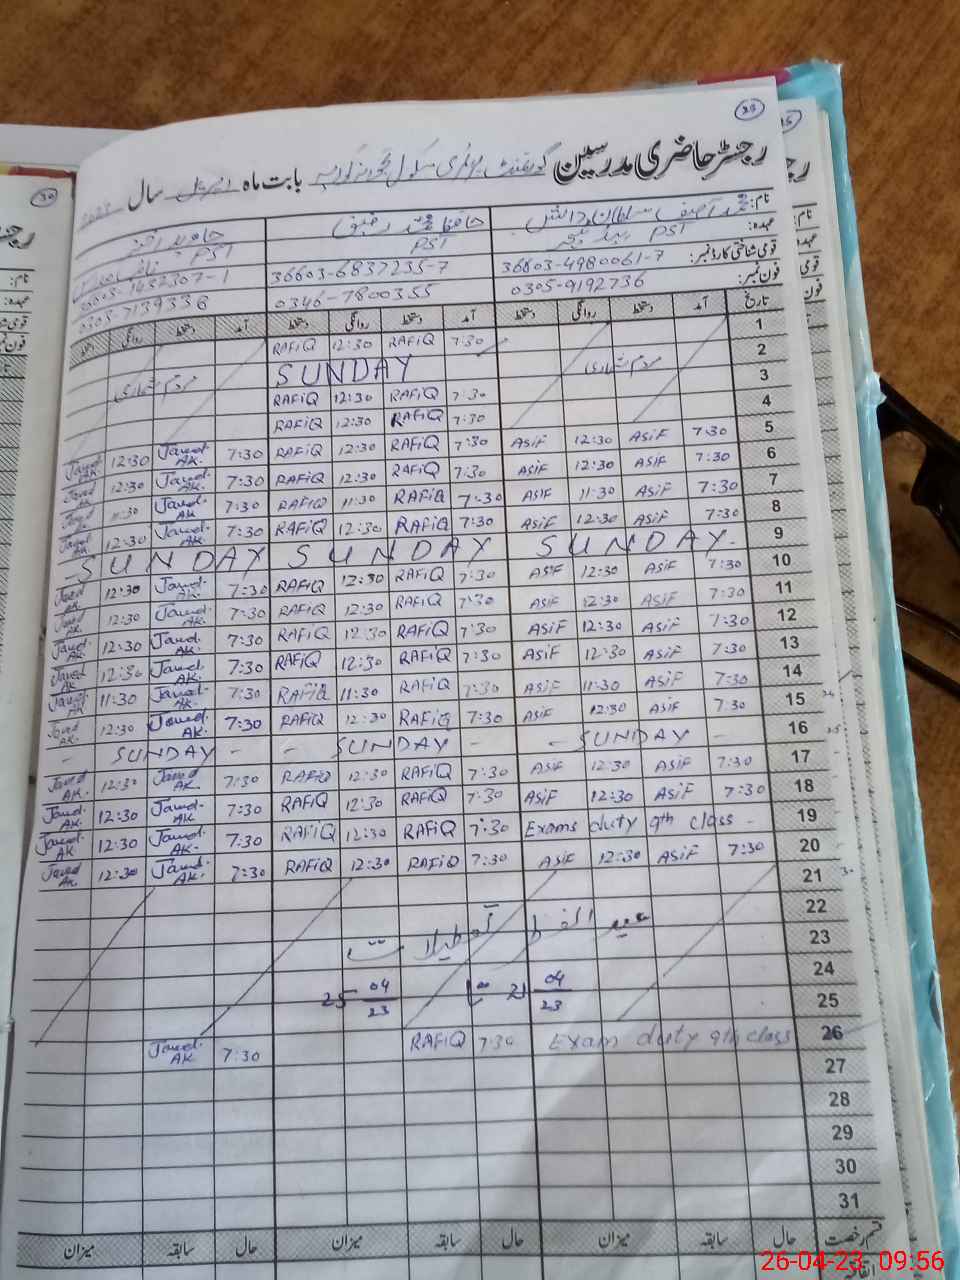 25
رجسٹر حاضری مدرسین گورنمنٹ پرائمری سکول بابت ماہ اپریل سال 2023
نام: محمد آصف سلطان حافظ محمد رفیق جاوید اختر
عہدہ: PST PST PST
قومی شناختی کارڈ نمبر: 36603-4980061-7 36603-6837235-7 36603-1632307-1
فون نمبر: 0305-9192736 0346-7800355 0305-7139336
تاریخ آمد دستخط روانگی دستخط آمد دستخط روانگی دستخط آمد دستخط روانگی دستخط
1 7:30 RAFiQ 12:30 RAFiQ
2 مردم شماری SUNDAY مردم شماری
3 7:30 RAFiQ 12:30 RAFiQ
4 7:30 RAFiQ 12:30 RAFiQ
5 7:30 ASiF 12:30 ASiF 7:30 RAFiQ 12:30 RAFiQ 7:30 Javed AK. 12:30 Javed AK.
6 7:30 ASiF 12:30 ASiF 7:30 RAFiQ 12:30 RAFiQ 7:30 Javed AK. 12:30 Javed AK.
7 7:30 ASiF 11:30 ASiF 7:30 RAFiQ 11:30 RAFiQ 7:30 Javed AK. 11:30 Javed AK.
8 7:30 ASiF 12:30 ASiF 7:30 RAFiQ 12:30 RAFiQ 7:30 Javed AK. 12:30 Javed AK.
9 SUNDAY SUNDAY SUNDAY
10 7:30 ASiF 12:30 ASiF 7:30 RAFiQ 12:30 RAFiQ 7:30 Javed AK. 12:30 Javed AK.
11 7:30 ASiF 12:30 ASiF 7:30 RAFiQ 12:30 RAFiQ 7:30 Javed AK. 12:30 Javed AK.
12 7:30 ASiF 12:30 ASiF 7:30 RAFiQ 12:30 RAFiQ 7:30 Javed AK. 12:30 Javed AK.
13 7:30 ASiF 12:30 ASiF 7:30 RAFiQ 12:30 RAFiQ 7:30 Javed AK. 12:30 Javed AK.
14 7:30 ASiF 11:30 ASiF 7:30 RAFiQ 11:30 RAFiQ 7:30 Javed AK. 11:30 Javed AK.
15 7:30 ASiF 12:30 ASiF 7:30 RAFiQ 12:30 RAFiQ 7:30 Javed AK. 12:30 Javed AK.
16 - SUNDAY - - SUNDAY - - SUNDAY -
17 7:30 ASiF 12:30 ASiF 7:30 RAFiQ 12:30 RAFiQ 7:30 Javed AK. 12:30 Javed AK.
18 7:30 ASiF 12:30 ASiF 7:30 RAFiQ 12:30 RAFiQ 7:30 Javed AK. 12:30 Javed AK.
19 Exams duty 9th class - 7:30 RAFiQ 12:30 RAFiQ 7:30 Javed AK. 12:30 Javed AK.
20 7:30 ASiF 12:30 ASiF 7:30 RAFiQ 12:30 RAFiQ 7:30 Javed AK. 12:30 Javed AK.
21
22
23 عید الفطر تعطیلات
24
25 21 04/23 تا 25 04/23
26 Exam duty 9th class 7:30 RAFiQ 7:30 Javed AK.
27
28
29
30
31
قسم رخصت حال سابقہ میزان حال سابقہ میزان حال سابقہ میزان
26-04-23 09:56